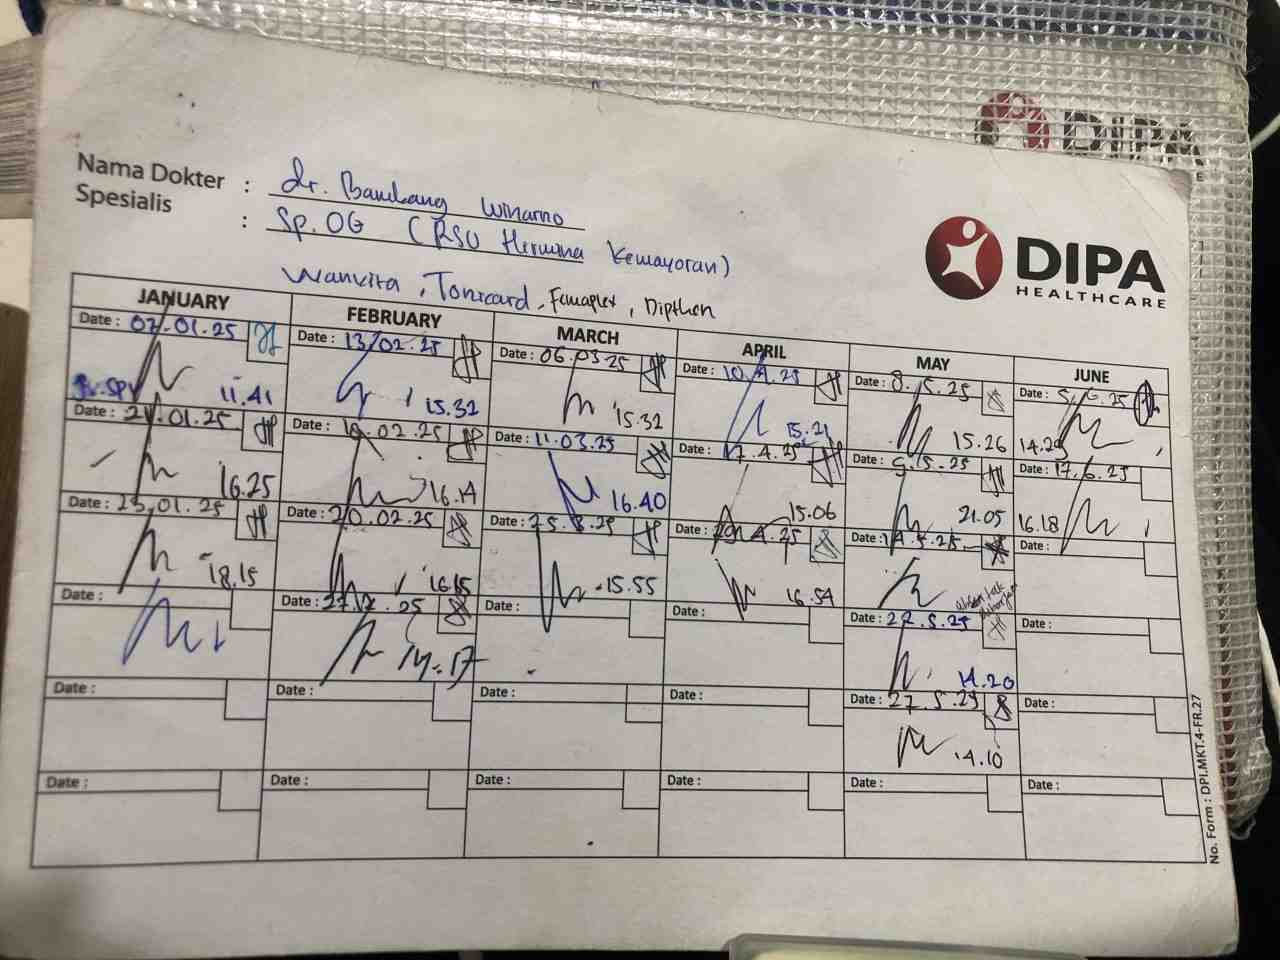 DIPA
Nama Dokter : dr. Bambang Winarno
Spesialis : Sp.OG (RSU Hermina Kemayoran)
DIPA
HEALTHCARE
Wanvita, Tonicard, Femaplex, Dipthen
JANUARY FEBRUARY MARCH APRIL MAY JUNE
Date : 07.01.25 Date : 13/02.25 Date : 06.03.25 Date : 10.4.25 Date : 8.5.25 Date : 5.6.25
11.41 15.32 15.32 15.21 15.26 14.29
Date : 21.01.25 Date : 02.25 Date : 11.03.25 Date : 17.4.25 Date : 9.5.25 Date : 17.6.25
16.25 16.14 16.40 15.06 21.05 16.18
Date : 01.25 Date : 20.02.25 Date : Date : 4.25 Date : Date :
18.15 16.15 15.55 16.54
Date : Date : 25 Date : Date : Date : 22.5.25 Date :
14.17 14.20
Date : Date : Date : Date : 27.5.25 Date :
14.10
Date : Date : Date : Date : Date : Date :
No. Form : DPI.MKT.4-FR.27